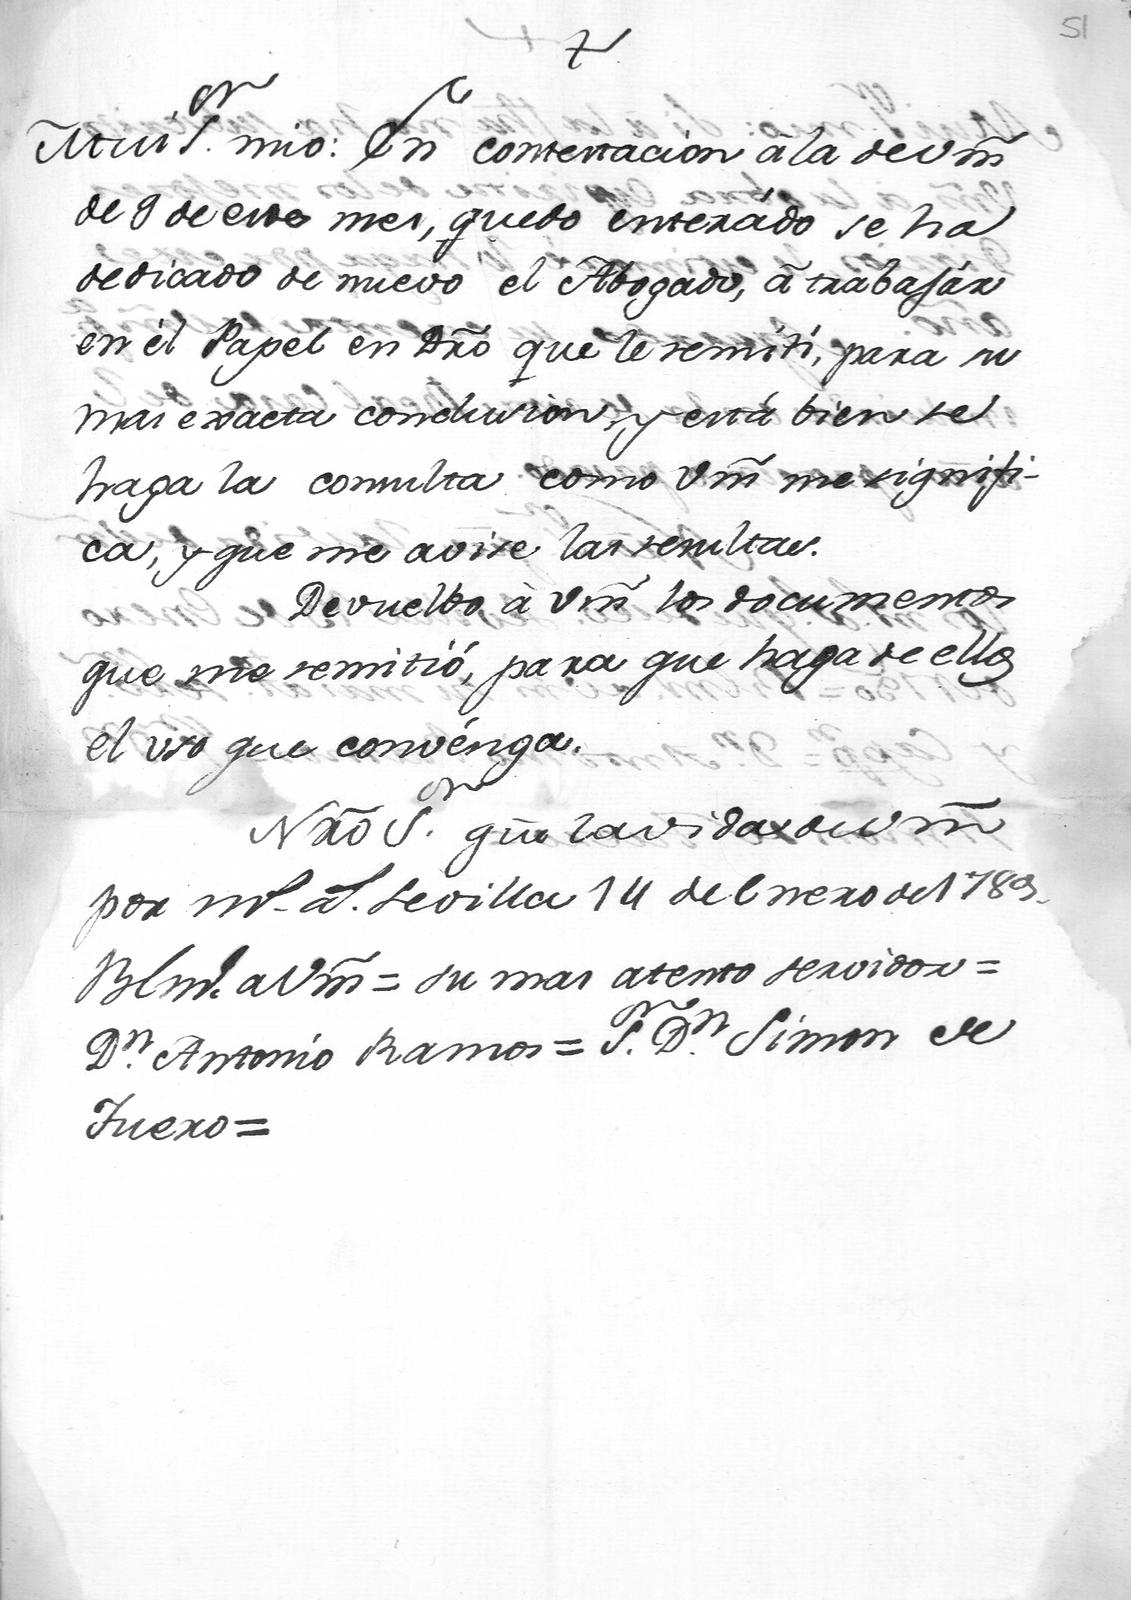 51
Mui Sr. mio: En contestacion à la de Vm̃
de 9 de este mes, quedo enterádo se ha
dedicado de nuevo el Abogado, à trabajár
en él Papel en Dr̃o que le remití, para su
mas exacta conclusion, y está bien se
haga la consulta como Vm̃ me signifi-
ca, y que me avise las resultas.
Devuelbo à Vm̃ los documentos
que me remitió, para que haga de ellos
el uso que convénga.
Nr̃o Sr. gũe la vida de Vm̃
por ms. as. Sevilla 14 de Enero de 1789.
Blm. a Vm̃ = su mas atento servidor =
Dn. Antonio Ramos = Sr. Dn. Simon de
Fuero =